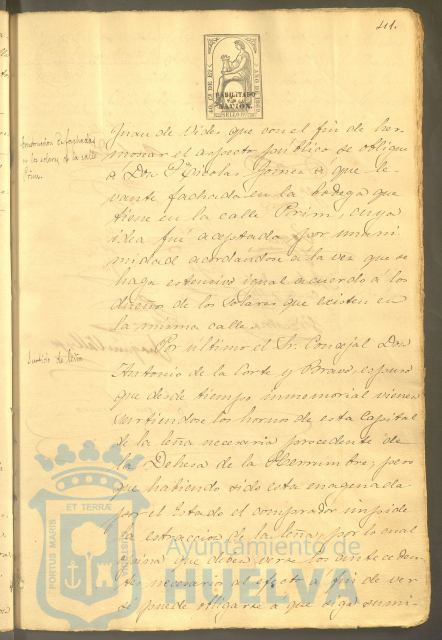 411.
HABILITADO
POR LA
NACION.
Construccion de fachadas
en los solares de la calle
Prim.
Juan de Vides que con el fin de her-
mosear el aspecto publico se obligue
á Don Nicolas Gomez á que le-
vante fachada en la bodega que
tiene en la calle Prim, cuya
idea fué aceptada por unani-
midad acordandose á la vez que se
haga estensivo igual acuerdo á los
dueños de los solares que existen en
la misma calle.
Surtido de leña
Por último el Sr. Concejal Don
Antonio de la Corte y Bravo, espuso
que desde tiempo inmemorial vienen
surtiendose los hornos de esta Capital
de la leña necesaria procedente de
la Dehesa de la Alcarrumbre, pero
que habiendo sido esta enagenada
por el Estado el comprador impide
la estraccion de la leña, por lo cual
opina que deben verse los anteceden-
tes necesarios al efecto a fin de ver
si puede obligarse a que siga sumi-
PORTUS MARIS
ET TERRÆ
CUSTODIA
Ayuntamiento de
HUELVA